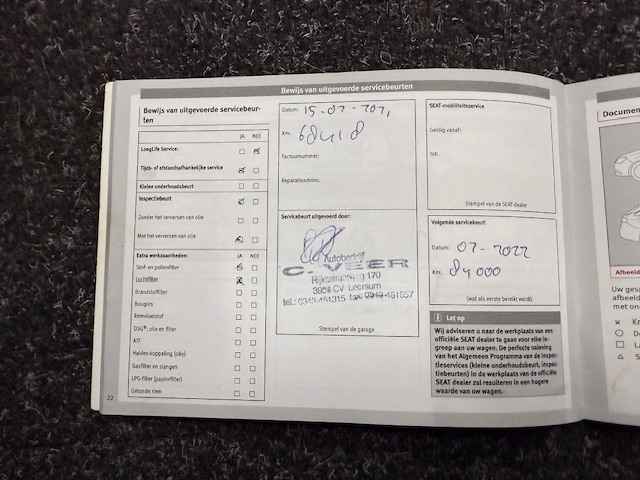 Bewijs van uitgevoerde servicebeurten
Bewijs van uitgevoerde servicebeur-
ten
JA NEE
LongLife Service:
Tijds- of afstandsafhankelijke service
Kleine onderhoudsbeurt
Inspectiebeurt
Zonder het verversen van olie
Met het verversen van olie
Extra werkzaamheden: JA NEE
Stof- en pollenfilter
Luchtfilter
Brandstoffilter
Bougies
Remvloeistof
DSG®: olie en filter
ATF
Haldex-koppeling (olie)
Gasfilter en slangen
LPG-filter (gasfilter)
Getande riem
22
Datum: 15-07-2021
Km: 68418
Factuurnummer:
Reparatienorm:
Servicebeurt uitgevoerd door:
Autobedrijf
C. VEER
Rijksstraatweg 170
3956 CV Leersum
Stempel van de garage
SEAT-mobiliteitsservice
Geldig vanaf:
tot:
Stempel van de SEAT dealer
Volgende servicebeurt
Datum: 07-2022
Km: 84000
(wat als eerste bereikt wordt)
Let op
Wij adviseren u naar de werkplaats van een
officiële SEAT dealer te gaan voor elke in-
greep aan uw wagen. De perfecte naleving
van het Algemeen Programma van de inspec-
tieservices (kleine onderhoudsbeurt, inspec-
tiebeurten) in de werkplaats van de officiële
SEAT dealer zal resulteren in een hogere
waarde van uw wagen.
Documen
Afbeeld
Uw gesa
afbeeld
met on